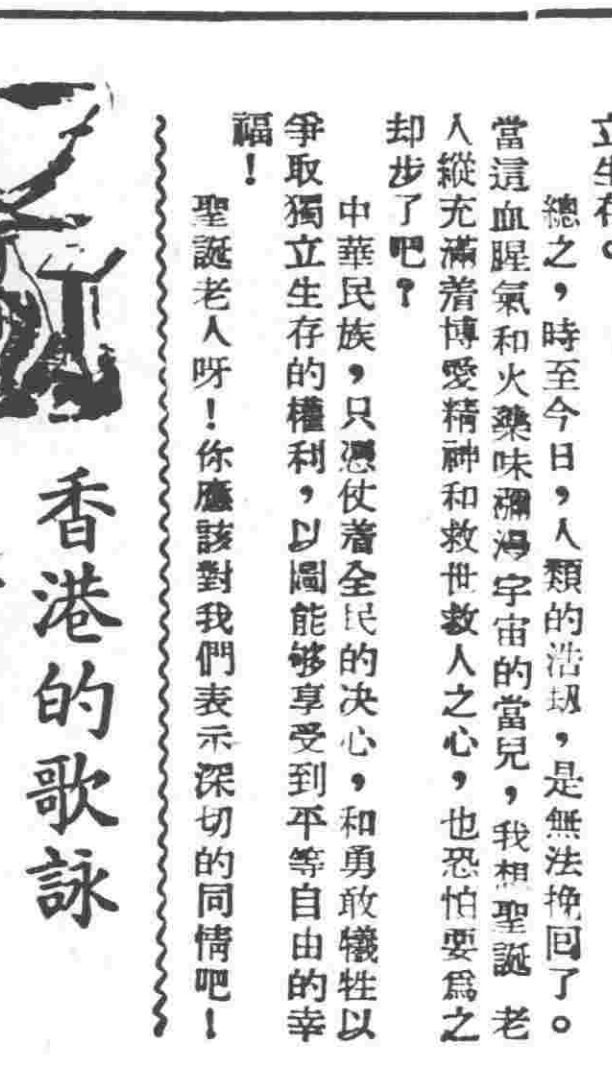 立生存。
總之，時至今日，人類的浩劫，是無法挽回了。
當這血腥氣和火藥味瀰漫宇宙的當兒，我想聖誕老
人縱充滿着博愛精神和救世救人之心，也恐怕要爲之
却步了吧？
中華民族，只憑仗着全民的决心，和勇敢犧牲以
爭取獨立生存的權利，以圖能够享受到平等自由的幸
福！
聖誕老人呀！你應該對我們表示深切的同情吧！
香港的歌詠